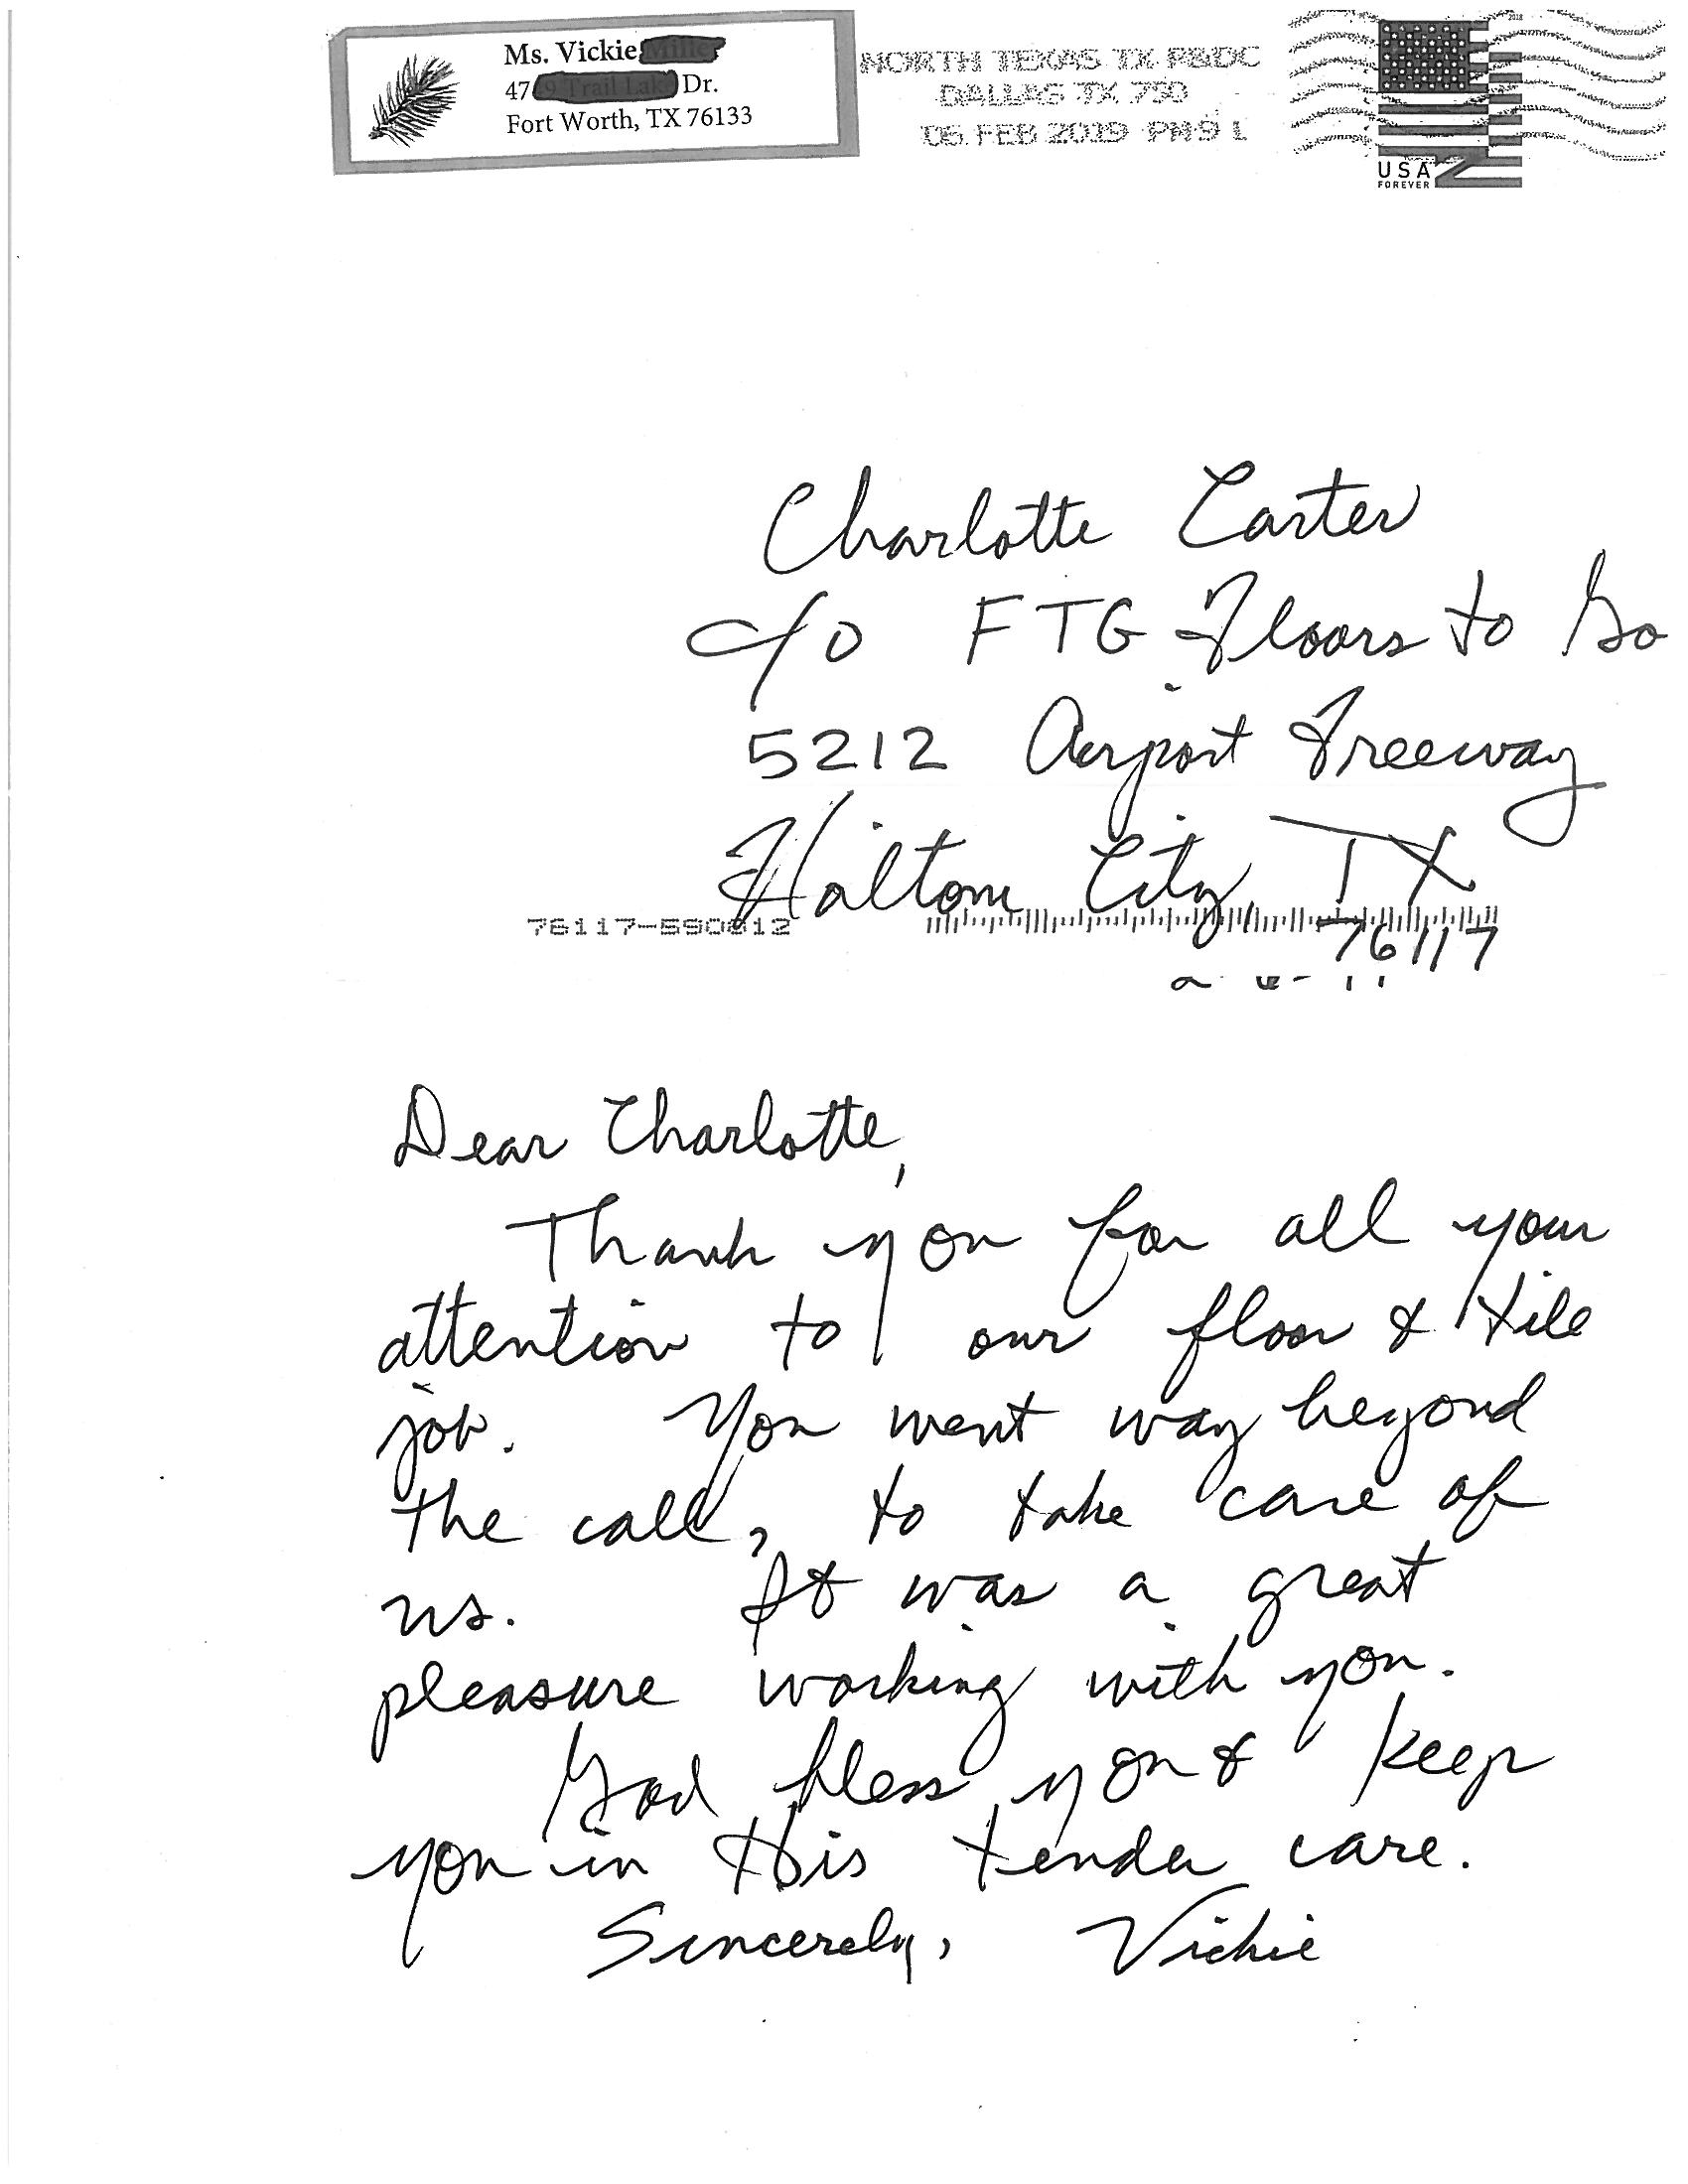 Ms. Vickie
47 Dr.
Fort Worth, TX 76133
NORTH TEXAS TX P&DC
DALLAS TX 750
FEB 2019 PM 9 L
2018
USA
FOREVER
Charlotte Carter
c/o FTG Floors to Go
5212 Airport Freeway
Haltom City, TX
76117
Dear Charlotte,
Thank you for all your
attention to our floor & tile
job. You went way beyond
the call, to take care of
us. It was a great
pleasure working with you.
God bless you & keep
you in His tender care.
Sincerely, Vickie